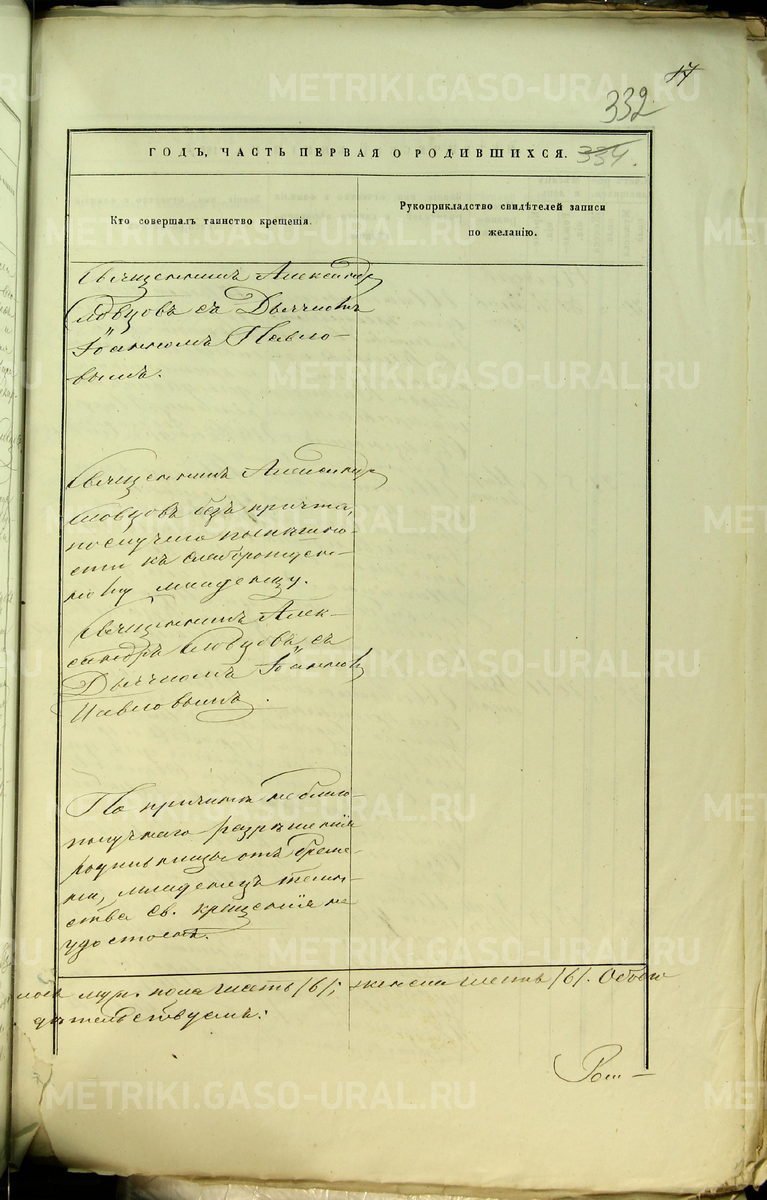 17
332
ГОДЪ, ЧАСТЬ ПЕРВАЯ О РОДИВШИХСЯ.
334.
Кто совершалъ таинство крещенія.
Рукоприкладство свидѣтелей записи
по желанію.
Священникъ Александръ
Словцовъ съ Дьячкомъ
Іоанномъ Павло-
вымъ.
Священникъ Александръ
Словцовъ безъ причта,
по случаю
къ
младенцу.
Священникъ Алек-
сандръ Словцовъ съ
Дьячкомъ Іоанномъ
Павловымъ.
По причинѣ небла­го-
получнаго разрѣшенія
родильницы отъ бреме-
ни, младенецъ таин-
ства св. крещенія не
удостоенъ.
муж. пола шесть /6/; женска шесть /6/.
Рош-
METRIKI.GASO-URAL.RU